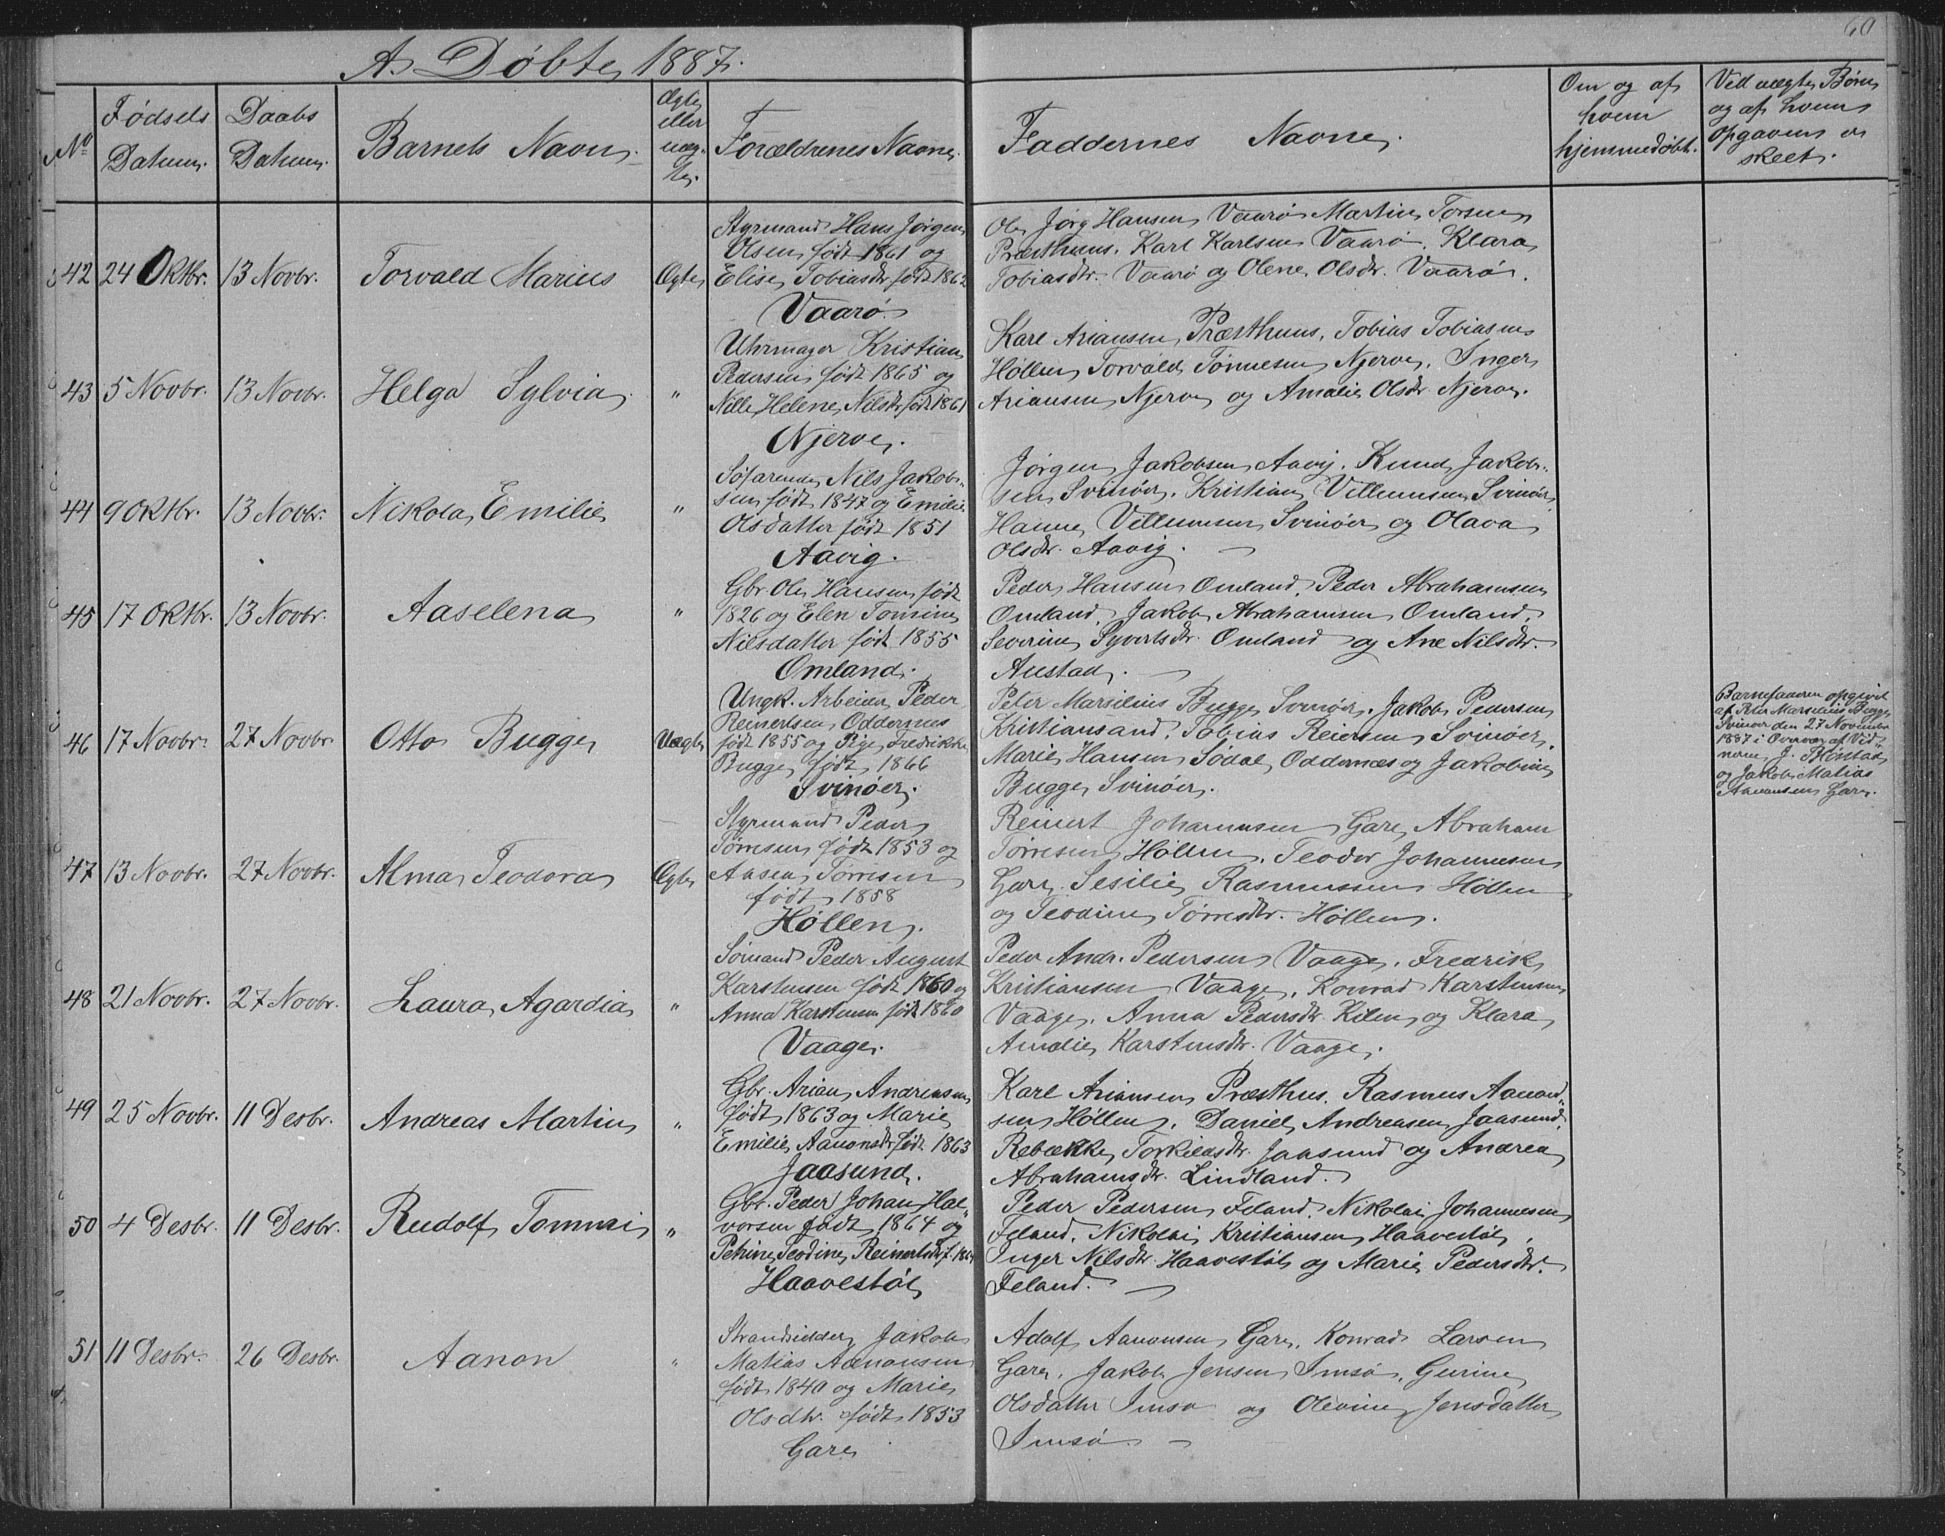 60
A. Døbte 1887.
No
Fødsels Datum.
Daabs Datum.
Barnets Navn.
Ægte eller uægte.
Forældrenes Navne.
Faddernes Navne.
Om og af hvem hjemmedøbt.
Ved uægte Børn og af hvem Opgaven er skeet.
42 24 Oktbr. 13 Novbr. Torvald Marius Ægte
Styrmand Hans Jørgen
Olsen født 1861 og
Elise Tobiasdtr født 1862
Vaarø.
Ole Jørg Hansen Vaarø Martin Torsen
Præsthuus. Karl Karlsen Vaarø. Klara
Tobiasdtr. Vaarø og Olene Olsdtr. Vaarø.
43 5 Novbr. 13 Novbr. Helga Sylvia "
Uhrmager Kristian
Pedersen født 1865 og
Nille Helene Nilsdtr født 1861
Njerve.
Karl Ariansen Præsthuus. Tobias Tobiasen
Høllen Torvald Tønnesen Njerve. Inger
Ariansen Njerve og Amalie Olsdtr. Njerve.
44 9 Oktbr. 13 Novbr. Nikola Emilie "
Søfarende Nils Jakob-
sen født 1847 og Emilie
Olsdatter født 1851
Aavig.
Jørgen Jakobsen Aavig. Knud Jakob-
sen Svinøer. Kristian Villumsen Svinøer
Hanne Villumsen Svinøer og Olava
Olsdtr. Aavig. —
45 17 Oktbr. 13 Novbr. Aaselena "
Gbr. Ole Hansen født
1826 og Elen Tomine
Nilsdatter født 1855
Omland.
Peder Hansen Omland. Peder Abrahamsen
Omland. Jakob Abrahamsen Omland.
Severine Syvertsdtr. Omland og Ane Nilsdtr.
Austad. —
46 17 Novbr. 27 Novbr. Otto Bugge Uægte
Ungk. Arbeider Peder
Reinertsen Oddernes
født 1855 og Pige Fredrikke
Bugge født 1866
Svinøer.
Peter Marselius Bugge Svinøer. Jakob Pedersen
Kristiansand. Tobias Reiersen Svinøer.
Marie Hansen Sødal Oddernæs og Jakobine
Bugge Svinøer.
Barnefaderen opgivet
af Peter Marselius Bugge
Svinøer den 27 November
1887 i Overvær af Vid-
nerne J.
og Jakob Matias
Aanonsen Gare.
47 13 Novbr. 27 Novbr. Alma Teodora Ægte
Styrmand Peder
Tørresen født 1853 og
Aasea Tørresen
født 1858
Høllen.
Reinert Johannesen Gare Abraham
Tørresen Høllen. Teodor Johannesen
Gare. Sesilie Rasmussen Høllen
og Teodine Tørresdtr. Høllen.
48 21 Novbr. 27 Novbr. Laura Agardia "
Sømand Peder August
Karstensen født 1860 og
Anna Karstensen født 1860
Vaage.
Peder Andr. Pedersen Vaage. Fredrik
Kristiansen Vaage. Konrad Karstensen
Vaage. Anna Pedersdtr. Kilen og Klara
Amalie Karstensdtr. Vaage.
49 25 Novbr. 11 Desbr. Andreas Martin "
Gbr. Arian Andreasen
født 1863 og Marie
Emilie Aanonsdtr født 1863
Jaasund.
Karl Ariansen Præsthus. Rasmus Aanond-
sen Høllen. Daniel Andreasen Jaasund.
Rebække Torkildsdtr. Jaasund og Andrea
Abrahamsdtr. Lindland.
50 4 Desbr. 11 Desbr. Rudolf Tommi "
Gbr. Peder Johan Hal-
vorsen født 1864 og
Petrine Teodine Reinertsdtr f. 1864
Haavestøl
Peder Pedersen Feland. Nikolai Johannesen
Feland. Nikolai Kristiansen Haavestøl.
Inger Nilsdtr. Haavestøl og Marie Pedersdtr.
Feland. —
51 11 Desbr. 26 Desbr. Aanon "
Strandsidder Jakob
Matias Aanonsen
født 1840 og Marie
Olsdtr. født 1853
Gare
Adolf Aanonsen Gare. Konrad Larsen
Gare. Jakob Jensen Imsø. Gurine
Olsdatter Imsø og Olevine Jensdatter
Imsø. —